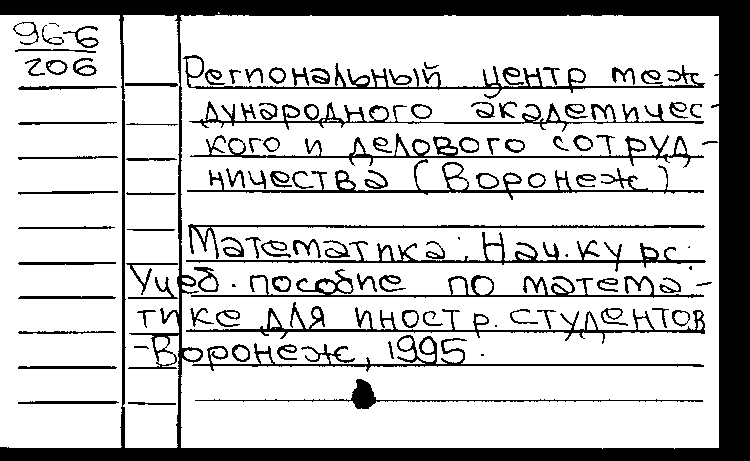 96-6
206
Региональный центр меж-
дународного академичес-
кого и делового сотруд-
ничества (Воронеж)
Математика: Нач. курс:
Учеб. пособие по матема-
тике для иностр. студентов
-Воронеж, 1995.